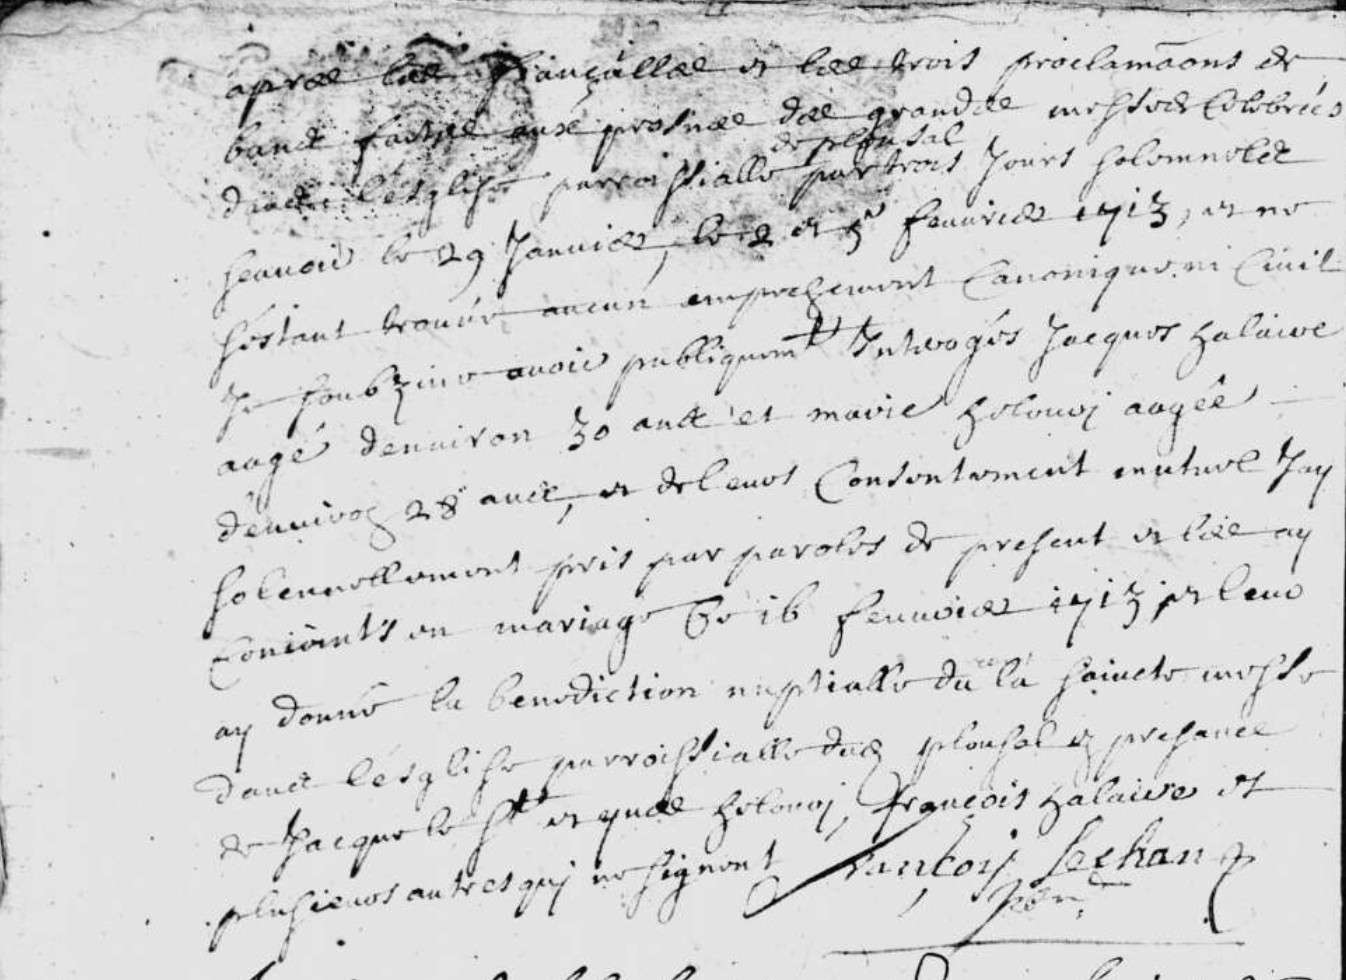 apres les fiançailles et les trois proclamaons de
bancs faites aux prosnes des grandes messes Celebrées
dans l'esglise parroissialle de plousal par trois Jours solemnels
scavoir le 29 Janvier, le 2 et 5e feuvrier 1713, et ne
s'estant trouvé aucun empeschement Canonique ni Civil
Je soubzine avoir publiquemt Interogés Jacques halaire
aagé denviron 30 ans et marie helouoj aagée
d'environ 28 ans, et de leurs Consentement mutuel Jay
solennellement pris par paroles de present et les ay
Conioints en mariage Ce 16 feuvrier 1713, et leur
ay donné la benediction nuptialle du la saincte messe
dans l'esglise parroissialle dud plousal en presance
de Jacque le et yves helouoj, françois halaire et
plusieurs autres qui ne signent françois Lechan